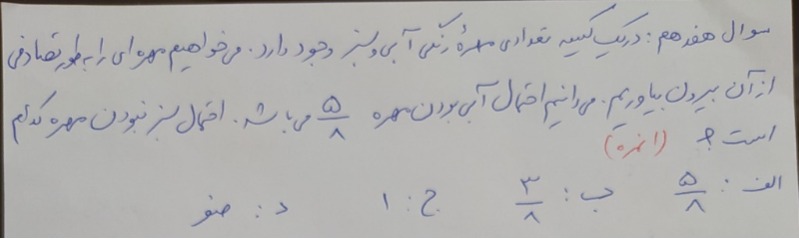 سوال هفدهم : در یک کیسه تعدادی مهرهٔ رنگی آبی و سبز وجود دارد. می‌خواهیم مهره‌ای را به طور تصادفی
از آن بیرون بیاوریم. می‌دانیم احتمال آبی بودن مهره ۵/۸ می‌باشد. احتمال سبز نبودن مهره کدام
است؟ (۱ نمره)
الف : ۵/۸ ب : ۳/۸ ج : ۱ د : صفر